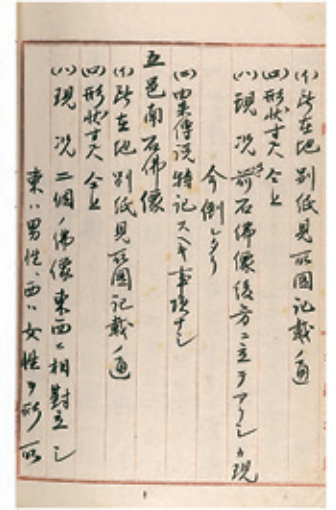 (イ)所在地 別紙見取圖記載ノ通
(ロ)形狀寸尺 仝上
(ハ)現況 前石佛像後方ニ立テアリシカ現
今倒レタリ
(ニ)由来傳説特記スヘキ事項ナシ
五 邑南石佛像
(イ)所在地 別紙見取圖記載ノ通
(ロ)形狀寸尺 仝上
(ハ)現況 二個ノ佛像東西ニ相對立シ
東ハ男性、西ハ女性ヲ